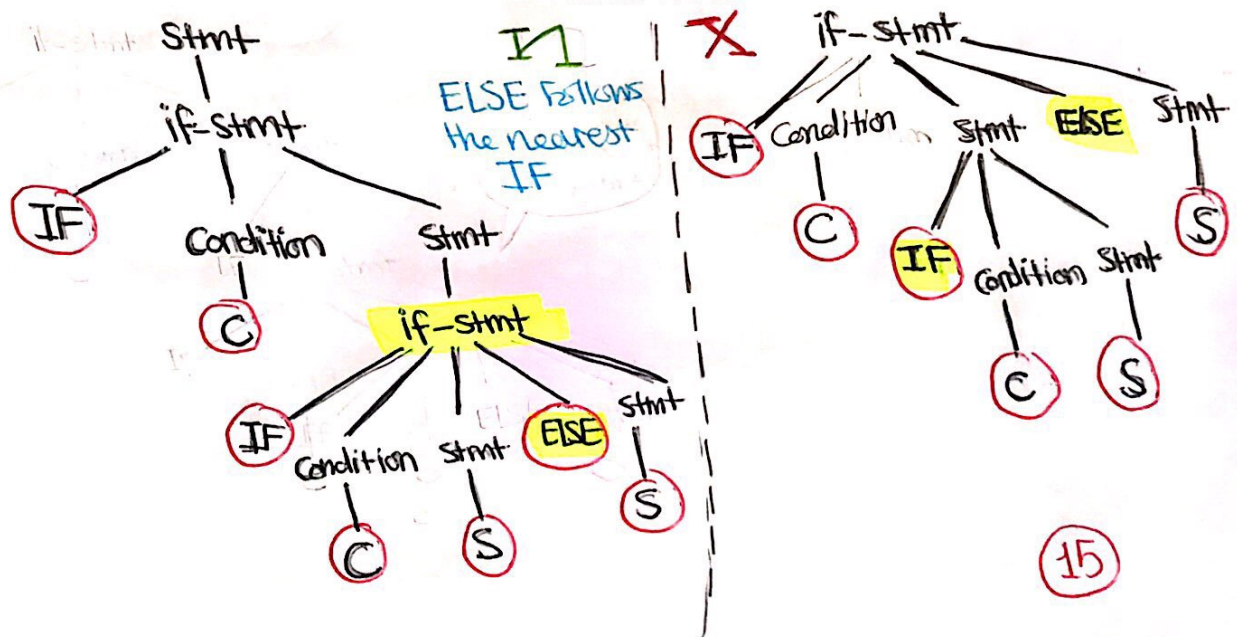 Stmt
if-Stmt
IF
Condition
Stmt
C
if-stmt
IF
Condition
Stmt
ELSE
Stmt
C
S
S
ELSE Follows
the nearest
IF
if-stmt
IF
Condition
Stmt
ELSE
Stmt
C
S
IF
Condition
Stmt
C
S
15